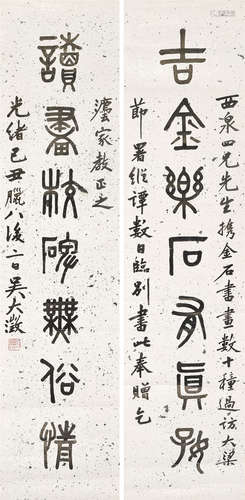 吉金樂石有真好
西泉四兄先生攜金石書畫數十種過訪大梁
節署縱譚數日臨別書此奉贈乞
讀畫校碑無俗情
瀍家教正之
光緒己丑臘八後二日吳大澂